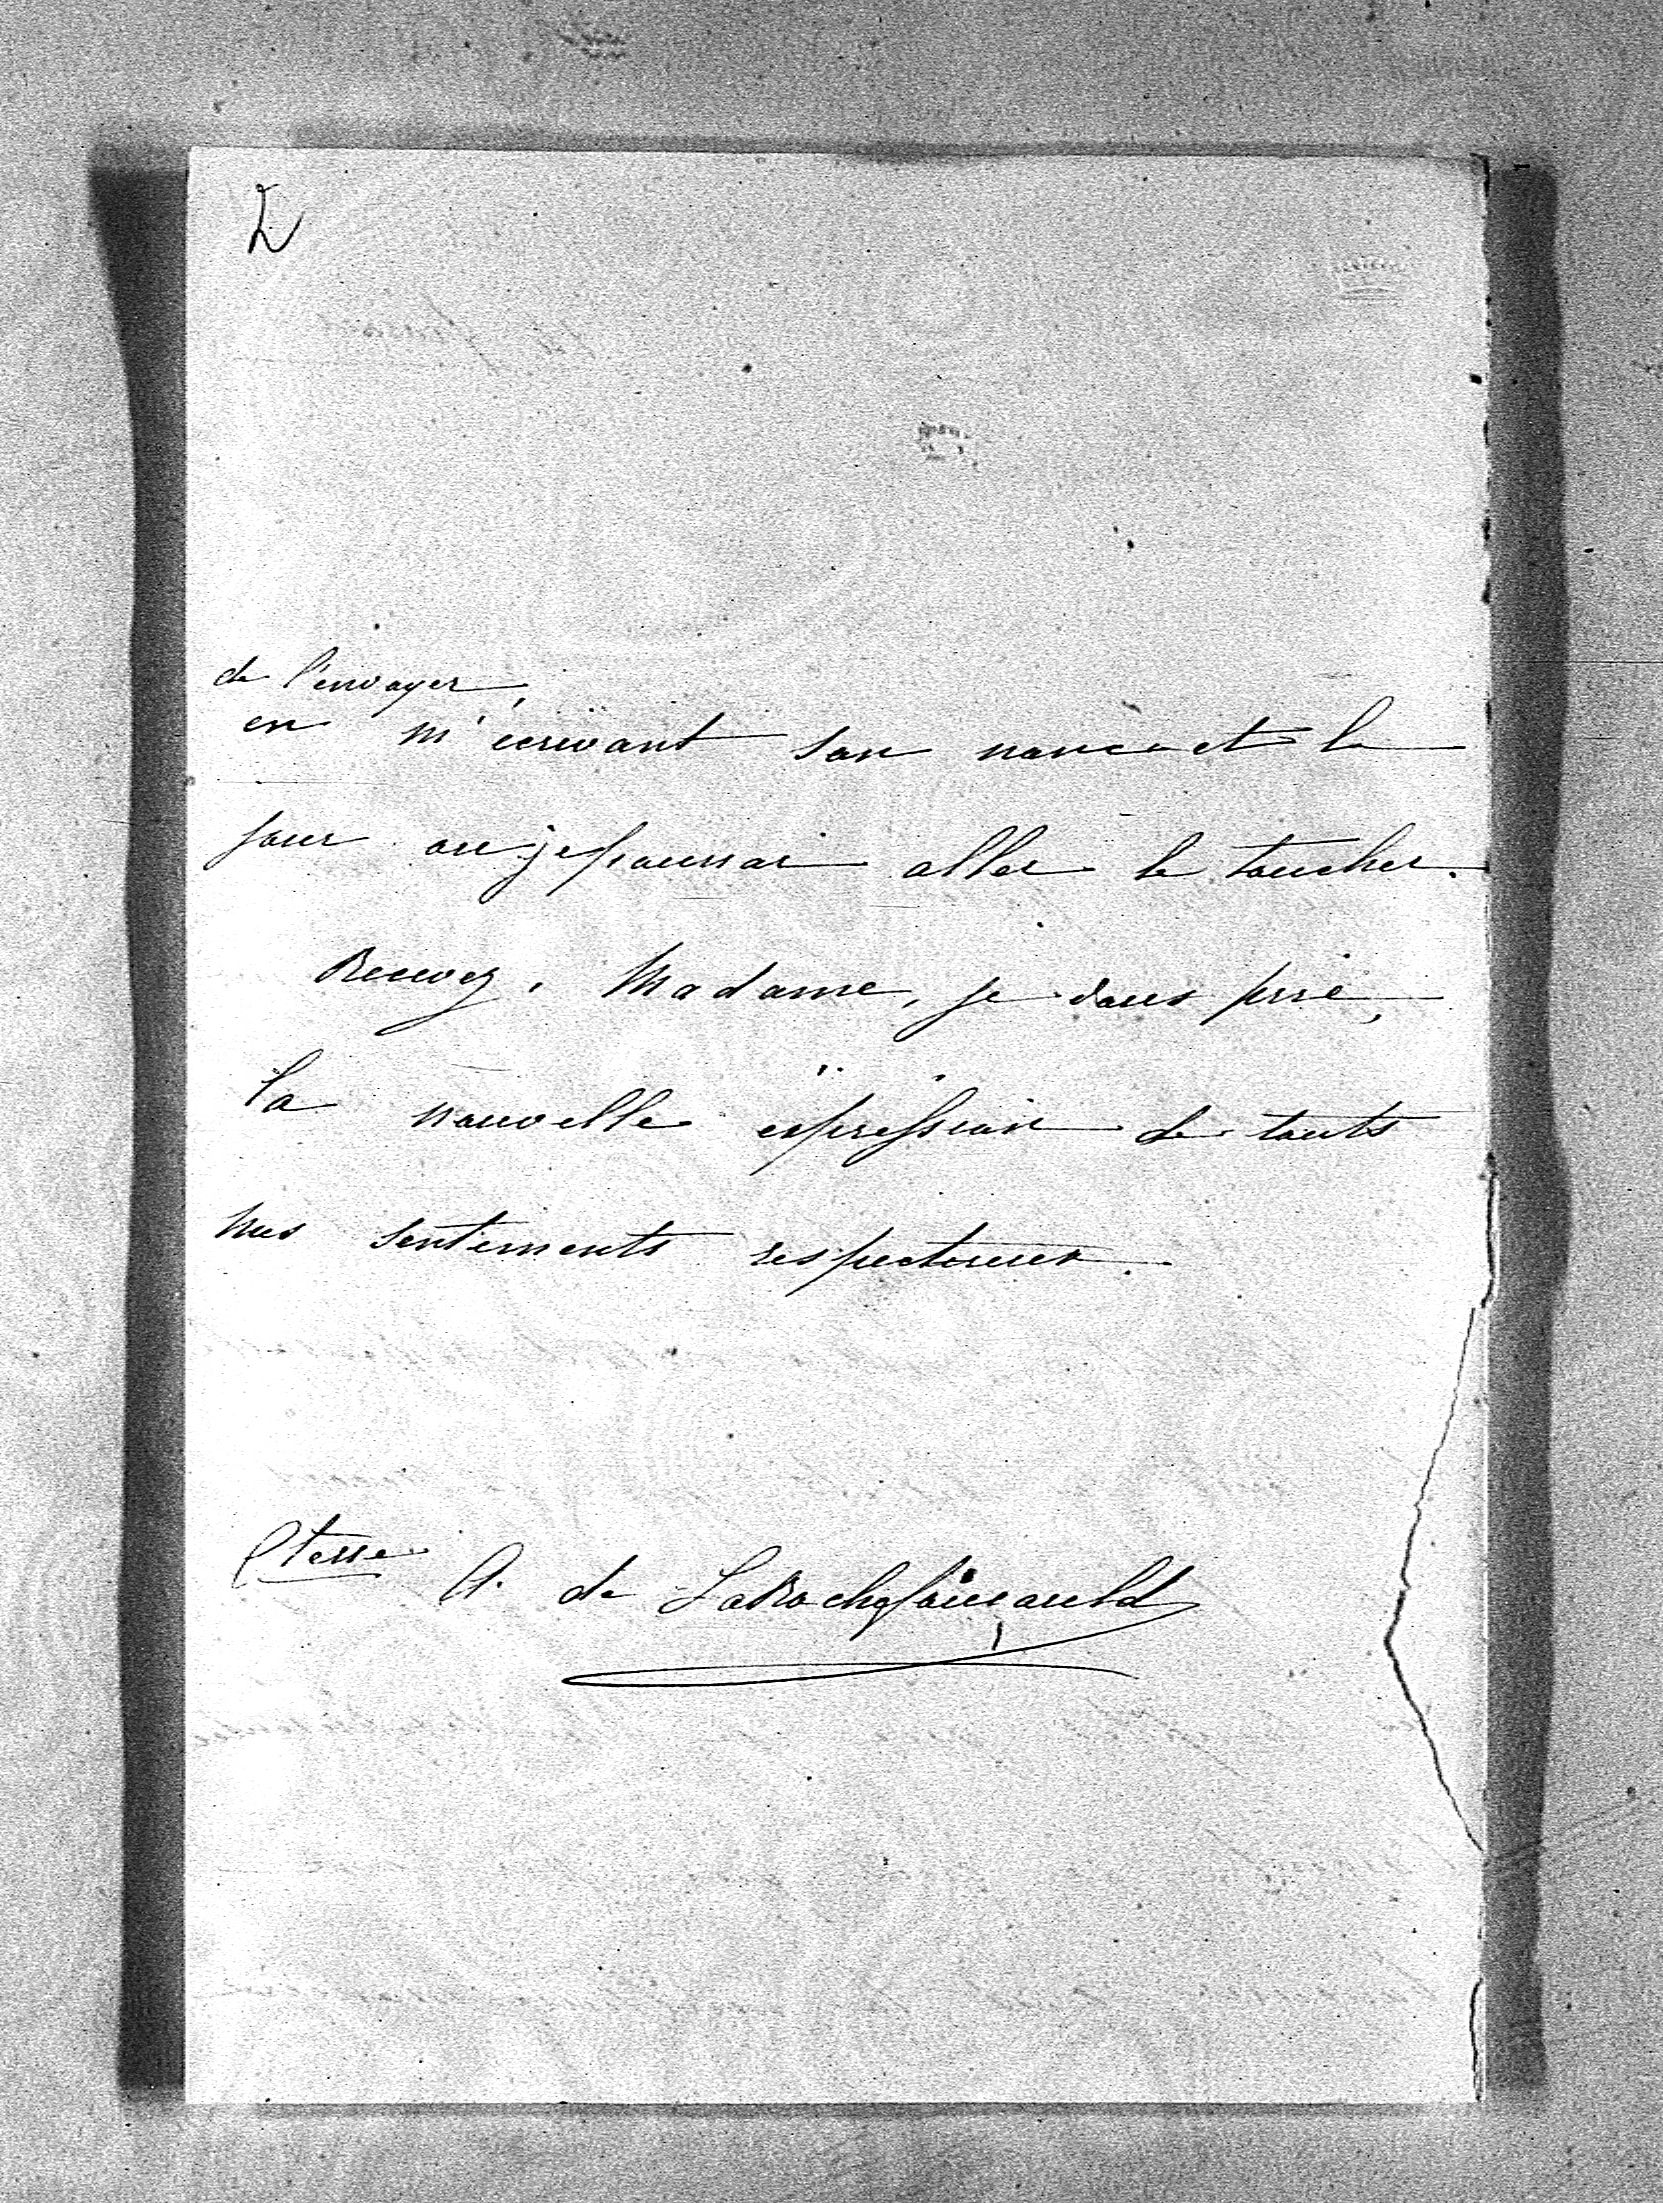 2
de l'envoyer,
en m'écrivant son nom et le
jour ou je pourrai aller le toucher.
Recevez, Madame, je vous prie,
la nouvelle expression de touts
mes sentiments respectueux.
Ctesse A. de LaRochefoucauld